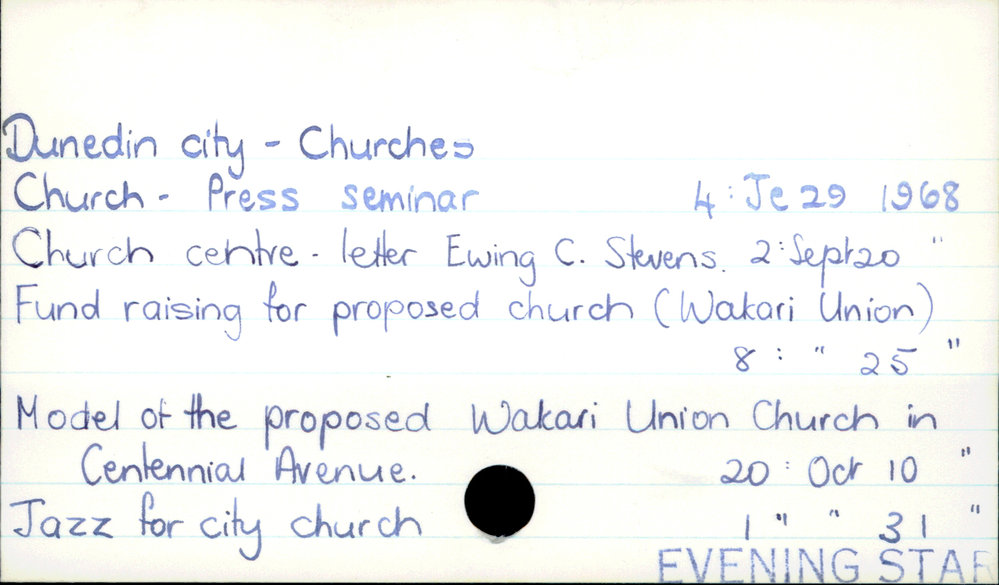 Dunedin city - Churches
Church - Press seminar 4 : Je 29 1968
Church centre - letter Ewing C. Stevens. 2 : Sept 20 "
Fund raising for proposed church (Wakari Union)
8 : " 25 "
Model of the proposed Wakari Union Church in
Centennial Avenue. 20 : Oct 10 "
Jazz for city church 1 " " 31 "
EVENING STAR